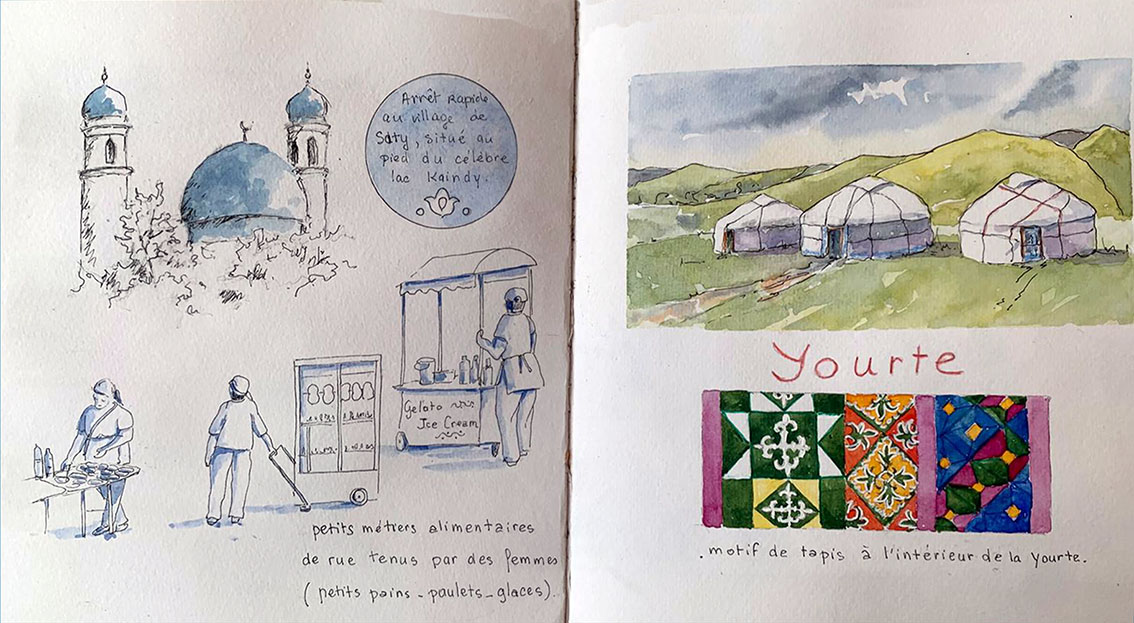 Arrêt rapide
au village de
Saty, situé au
pied du célèbre
lac Kaindy.
Gelato
Ice Cream
petits métiers alimentaires
de rue tenus par des femmes
(petits pains - paulets - glaces)
Yourte
. motif de tapis à l'intérieur de la yourte.